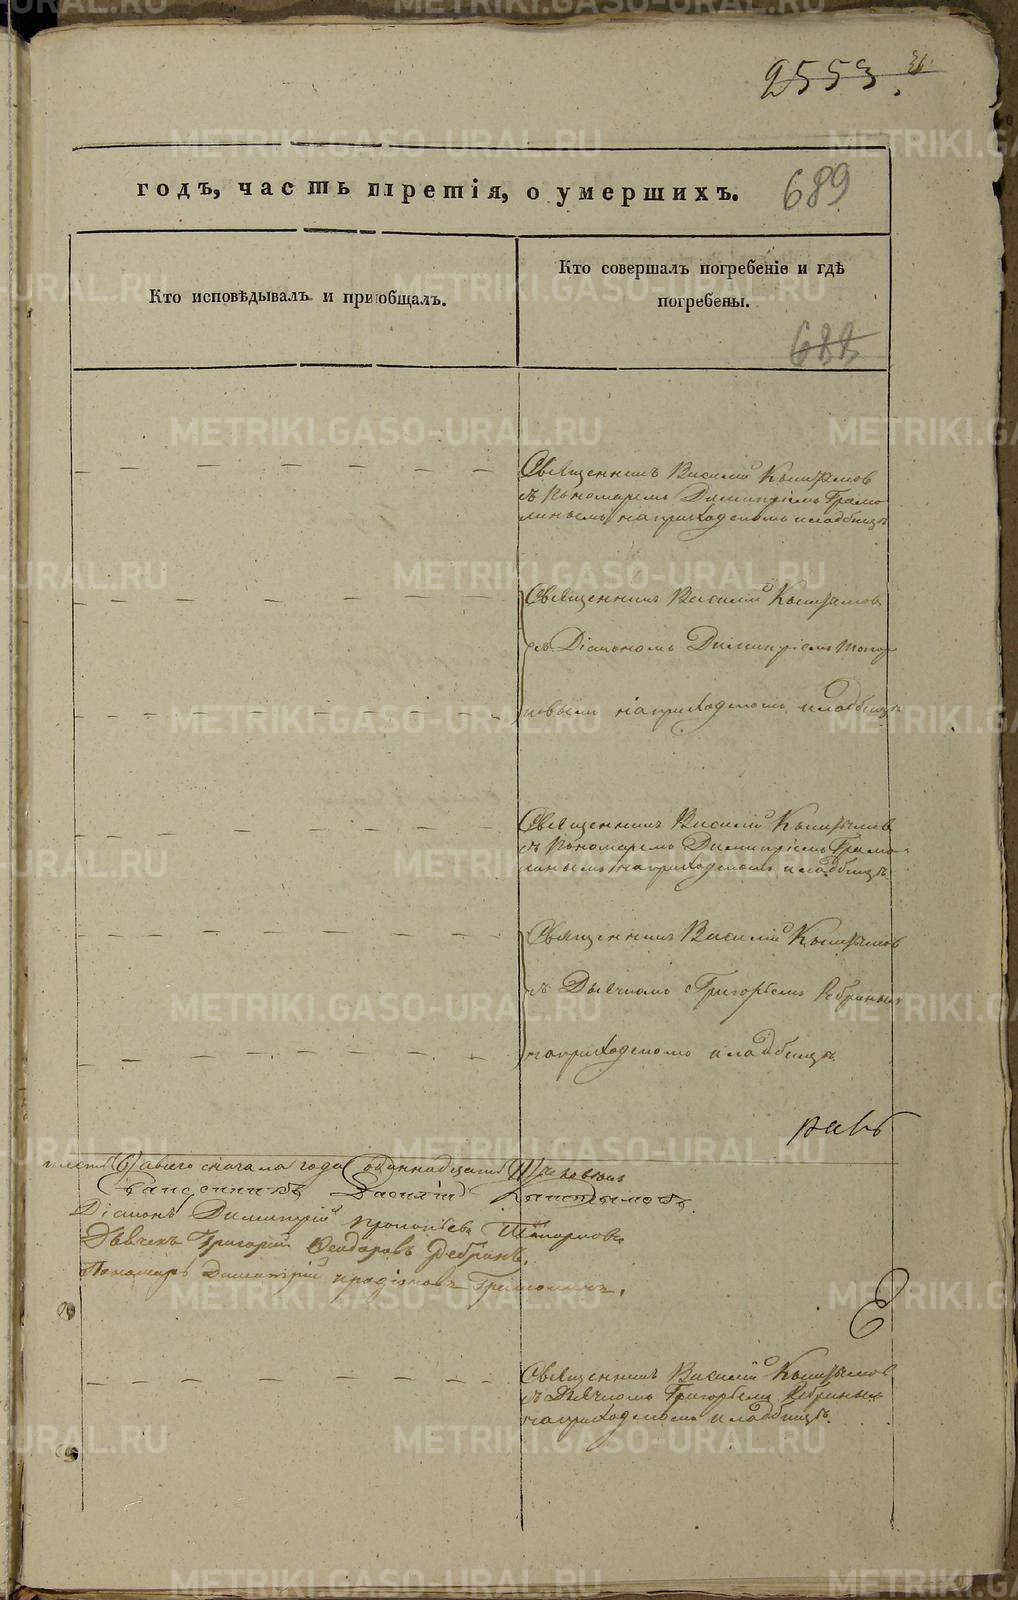 2553.
36
годъ, часть третія, о умершихъ.
689
Кто исповѣдывалъ и пріобщалъ.
Кто совершалъ погребеніе и гдѣ
погребены.
688
Священникъ Василій
съ Пономаремъ Димитріемъ Грамо
линымъ на приходскомъ кладбищѣ
Священникъ Василій
съ Діакономъ Димитріемъ Топор
ковымъ на приходскомъ кладбищѣ
Священникъ Василій
съ Пономаремъ Димитріемъ Грамо
линымъ на приходскомъ кладбищѣ
Священникъ Василій
съ Дьячкомъ Григорьемъ Ребринымъ
на приходскомъ кладбищѣ
сначала года
Священникъ Василій
Діаконъ Димитрій Топорковъ
Дьячекъ Григорій Ѳеодоровъ Ребринъ.
Пономарь Димитрій
Священникъ Василій
съ Дьячкомъ Григорьемъ Ребринымъ
на приходскомъ кладбищѣ.
METRIKI.GASO-URAL.RU